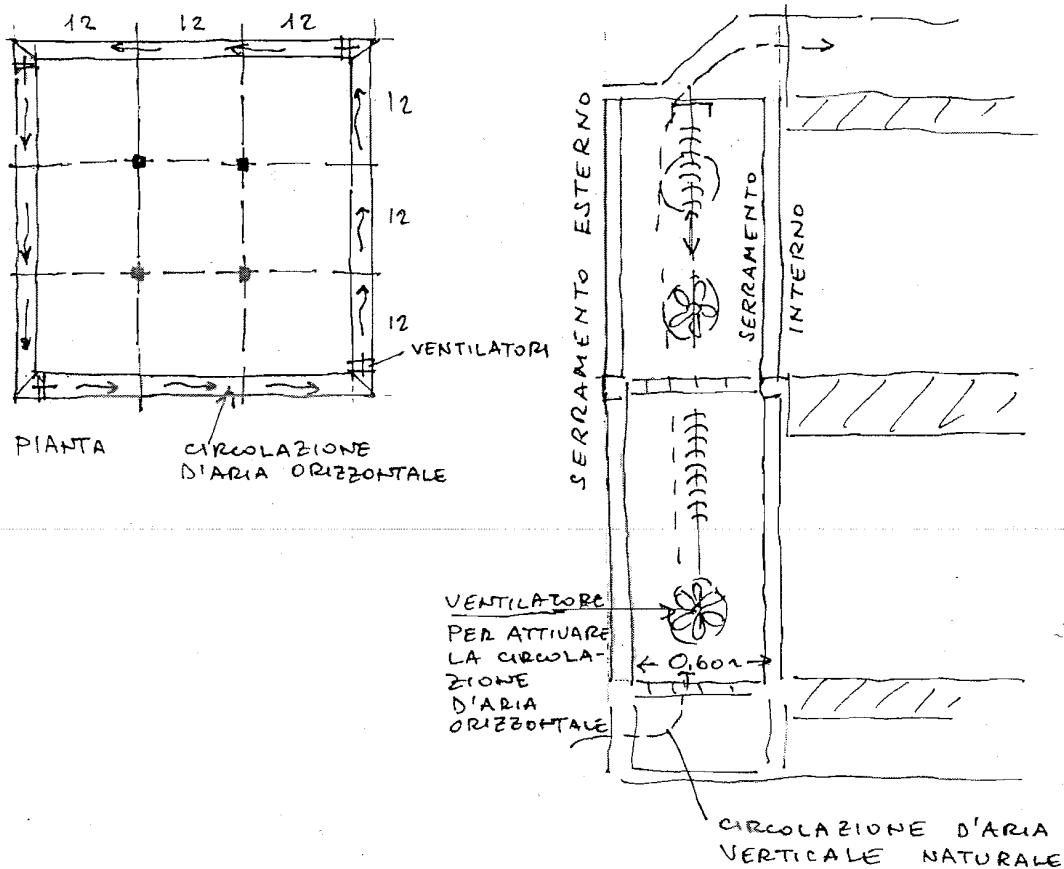 12 12 12
12
12
12
VENTILATORI
PIANTA
CIRCOLAZIONE
D'ARIA ORIZZONTALE
SERRAMENTO ESTERNO
SERRAMENTO
INTERNO
VENTILATORE
PER ATTIVARE
LA CIRCOLA-
ZIONE
D'ARIA
ORIZZONTALE
CIRCOLAZIONE D'ARIA
VERTICALE NATURALE